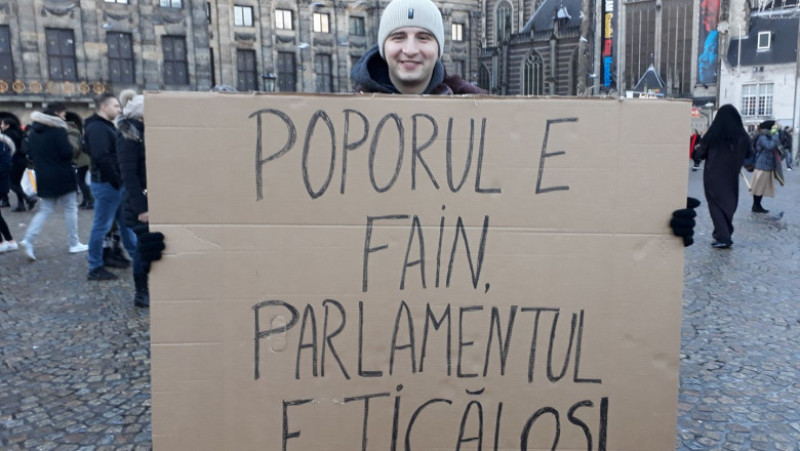 POPORUL E
FAIN,
PARLAMENTUL
E TICĂLOS!